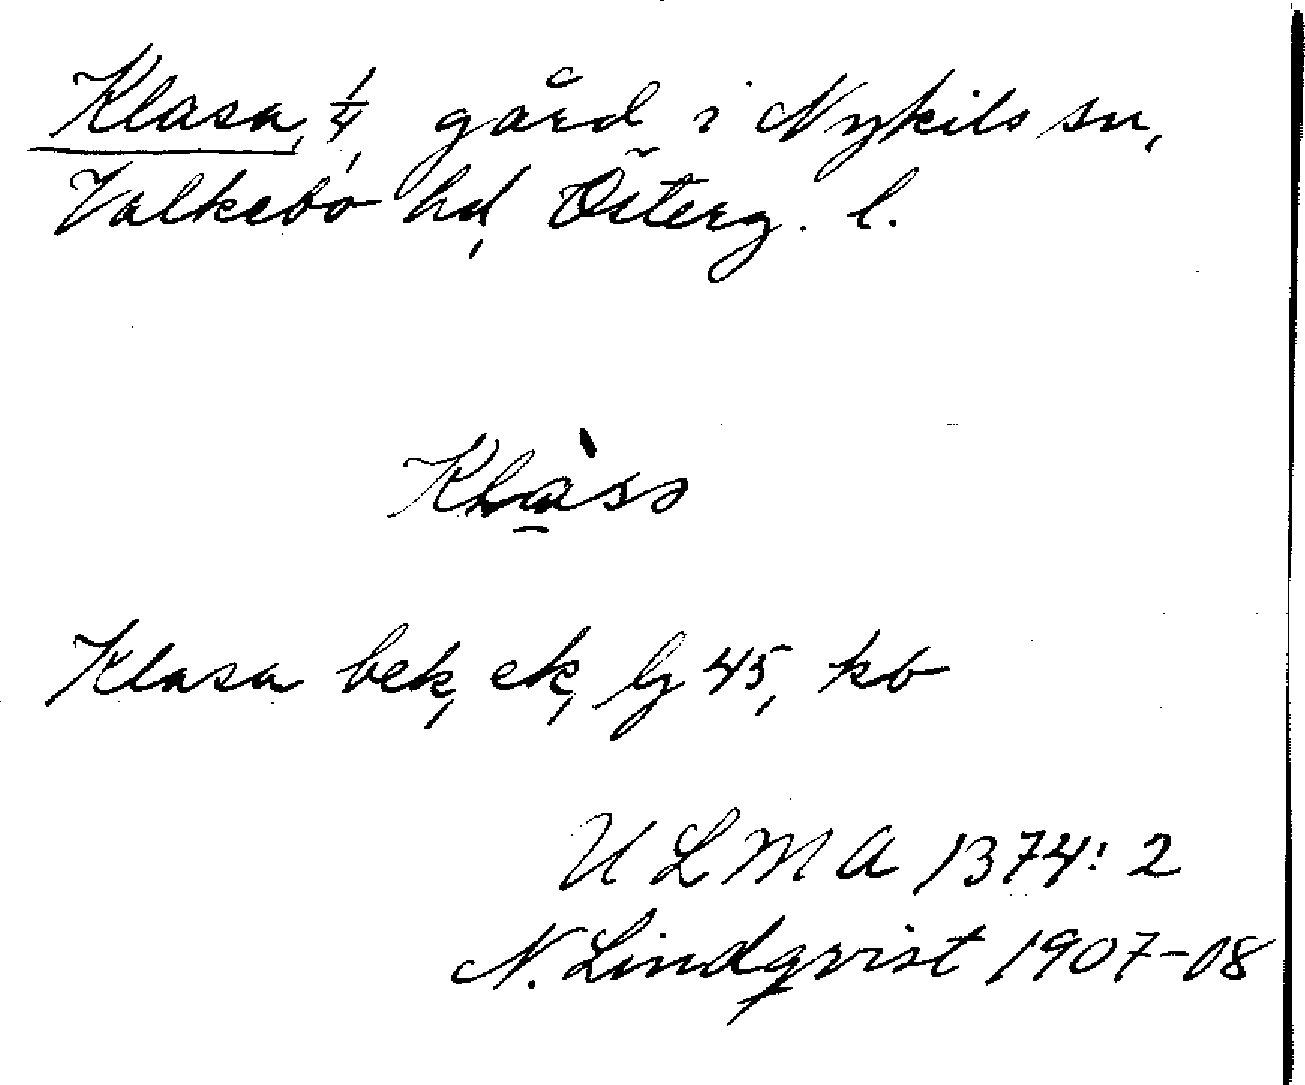 Klasa, 1/4, gård i Nykils sn,
Valkebo hd, Österg. l.
Klàsɘ
Klasa bek, ek, lj 45, kb
U L M A 1374:2
N. Lindqvist 1907-08